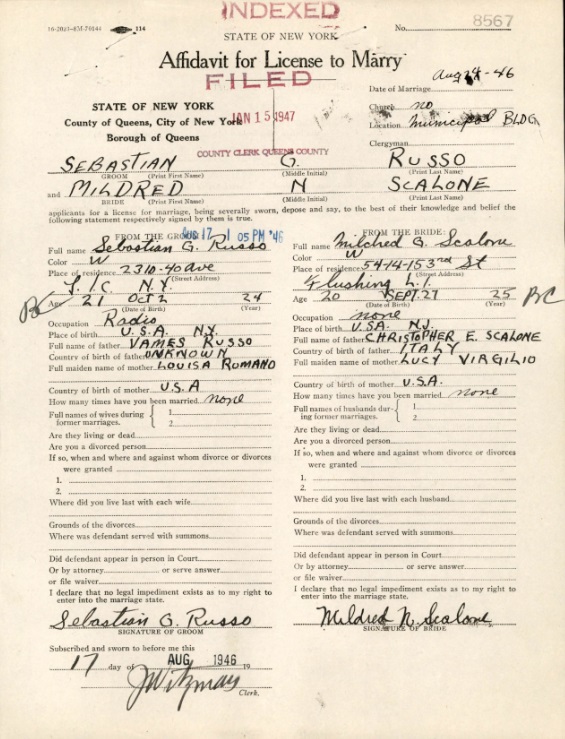 INDEXED
8567
No.
114
STATE OF NEW YORK
Affidavit for License to Marry
FILED
JAN 15 1947
COUNTY CLERK QUEENS COUNTY
Aug 24-46
Date of Marriage
Church no
Location Municipal BLDG.
Clergyman
STATE OF NEW YORK
County of Queens, City of New York
Borough of Queens
SEBASTIAN G. RUSSO
GROOM (Print First Name) (Middle Initial) (Print Last Name)
and MILDRED N SCALONE
BRIDE (Print First Name) (Middle Initial) (Print Last Name)
applicants for a license for marriage, being severally sworn, depose and say, to the best of their knowledge and belief the
following statement respectively signed by them is true.
FROM THE GROOM:
AUG 17 1 05 PM '46
Full name Sebastian G. Russo
Color W
Place of residence 2310-40 Ave
(Street Address)
L.I.C. N.Y.
BC
Age 21 OCT 2 24
(Date of Birth) (Year)
Occupation Radio
Place of birth U.S.A. N.Y.
Full name of father VAMES RUSSO
Country of birth of father UNKNOWN
Full maiden name of mother LOUISA ROMANO
Country of birth of mother U.S.A
How many times have you been married none
Full names of wives during former marriages. 1 2
Are they living or dead
Are you a divorced person
If so, when and where and against whom divorce or divorces
were granted
1.
2.
Where did you live last with each wife
Grounds of the divorces
Where was defendant served with summons
Did defendant appear in person in Court
Or by attorney or serve answer
or file waiver
I declare that no legal impediment exists as to my right to
enter into the marriage state.
Sebastian G. Russo
SIGNATURE OF GROOM
FROM THE BRIDE:
Full name Mildred G. Scalone
Color W
Place of residence 54-14-153rd St
(Street Address)
Flushing L.I.
Age 20 SEPT. 27 25
(Date of Birth) (Year)
BC
Occupation none
Place of birth U.S.A. N.J.
Full name of father CHRISTOPHER E. SCALONE
Country of birth of father ITALY
Full maiden name of mother LUCY VIRGILIO
Country of birth of mother U.S.A.
How many times have you been married none
Full names of husbands during former marriages. 1 2
Are they living or dead
Are you a divorced person
If so, when and where and against whom divorce or divorces
were granted
1.
2.
Where did you live last with each husband
Grounds of the divorces
Where was defendant served with summons
Did defendant appear in person in Court
Or by attorney or serve answer
or file waiver
I declare that no legal impediment exists as to my right to
enter into the marriage state.
Mildred N. Scalone
SIGNATURE OF BRIDE
Subscribed and sworn to before me this
17 day of AUG 1946 19
Clerk.